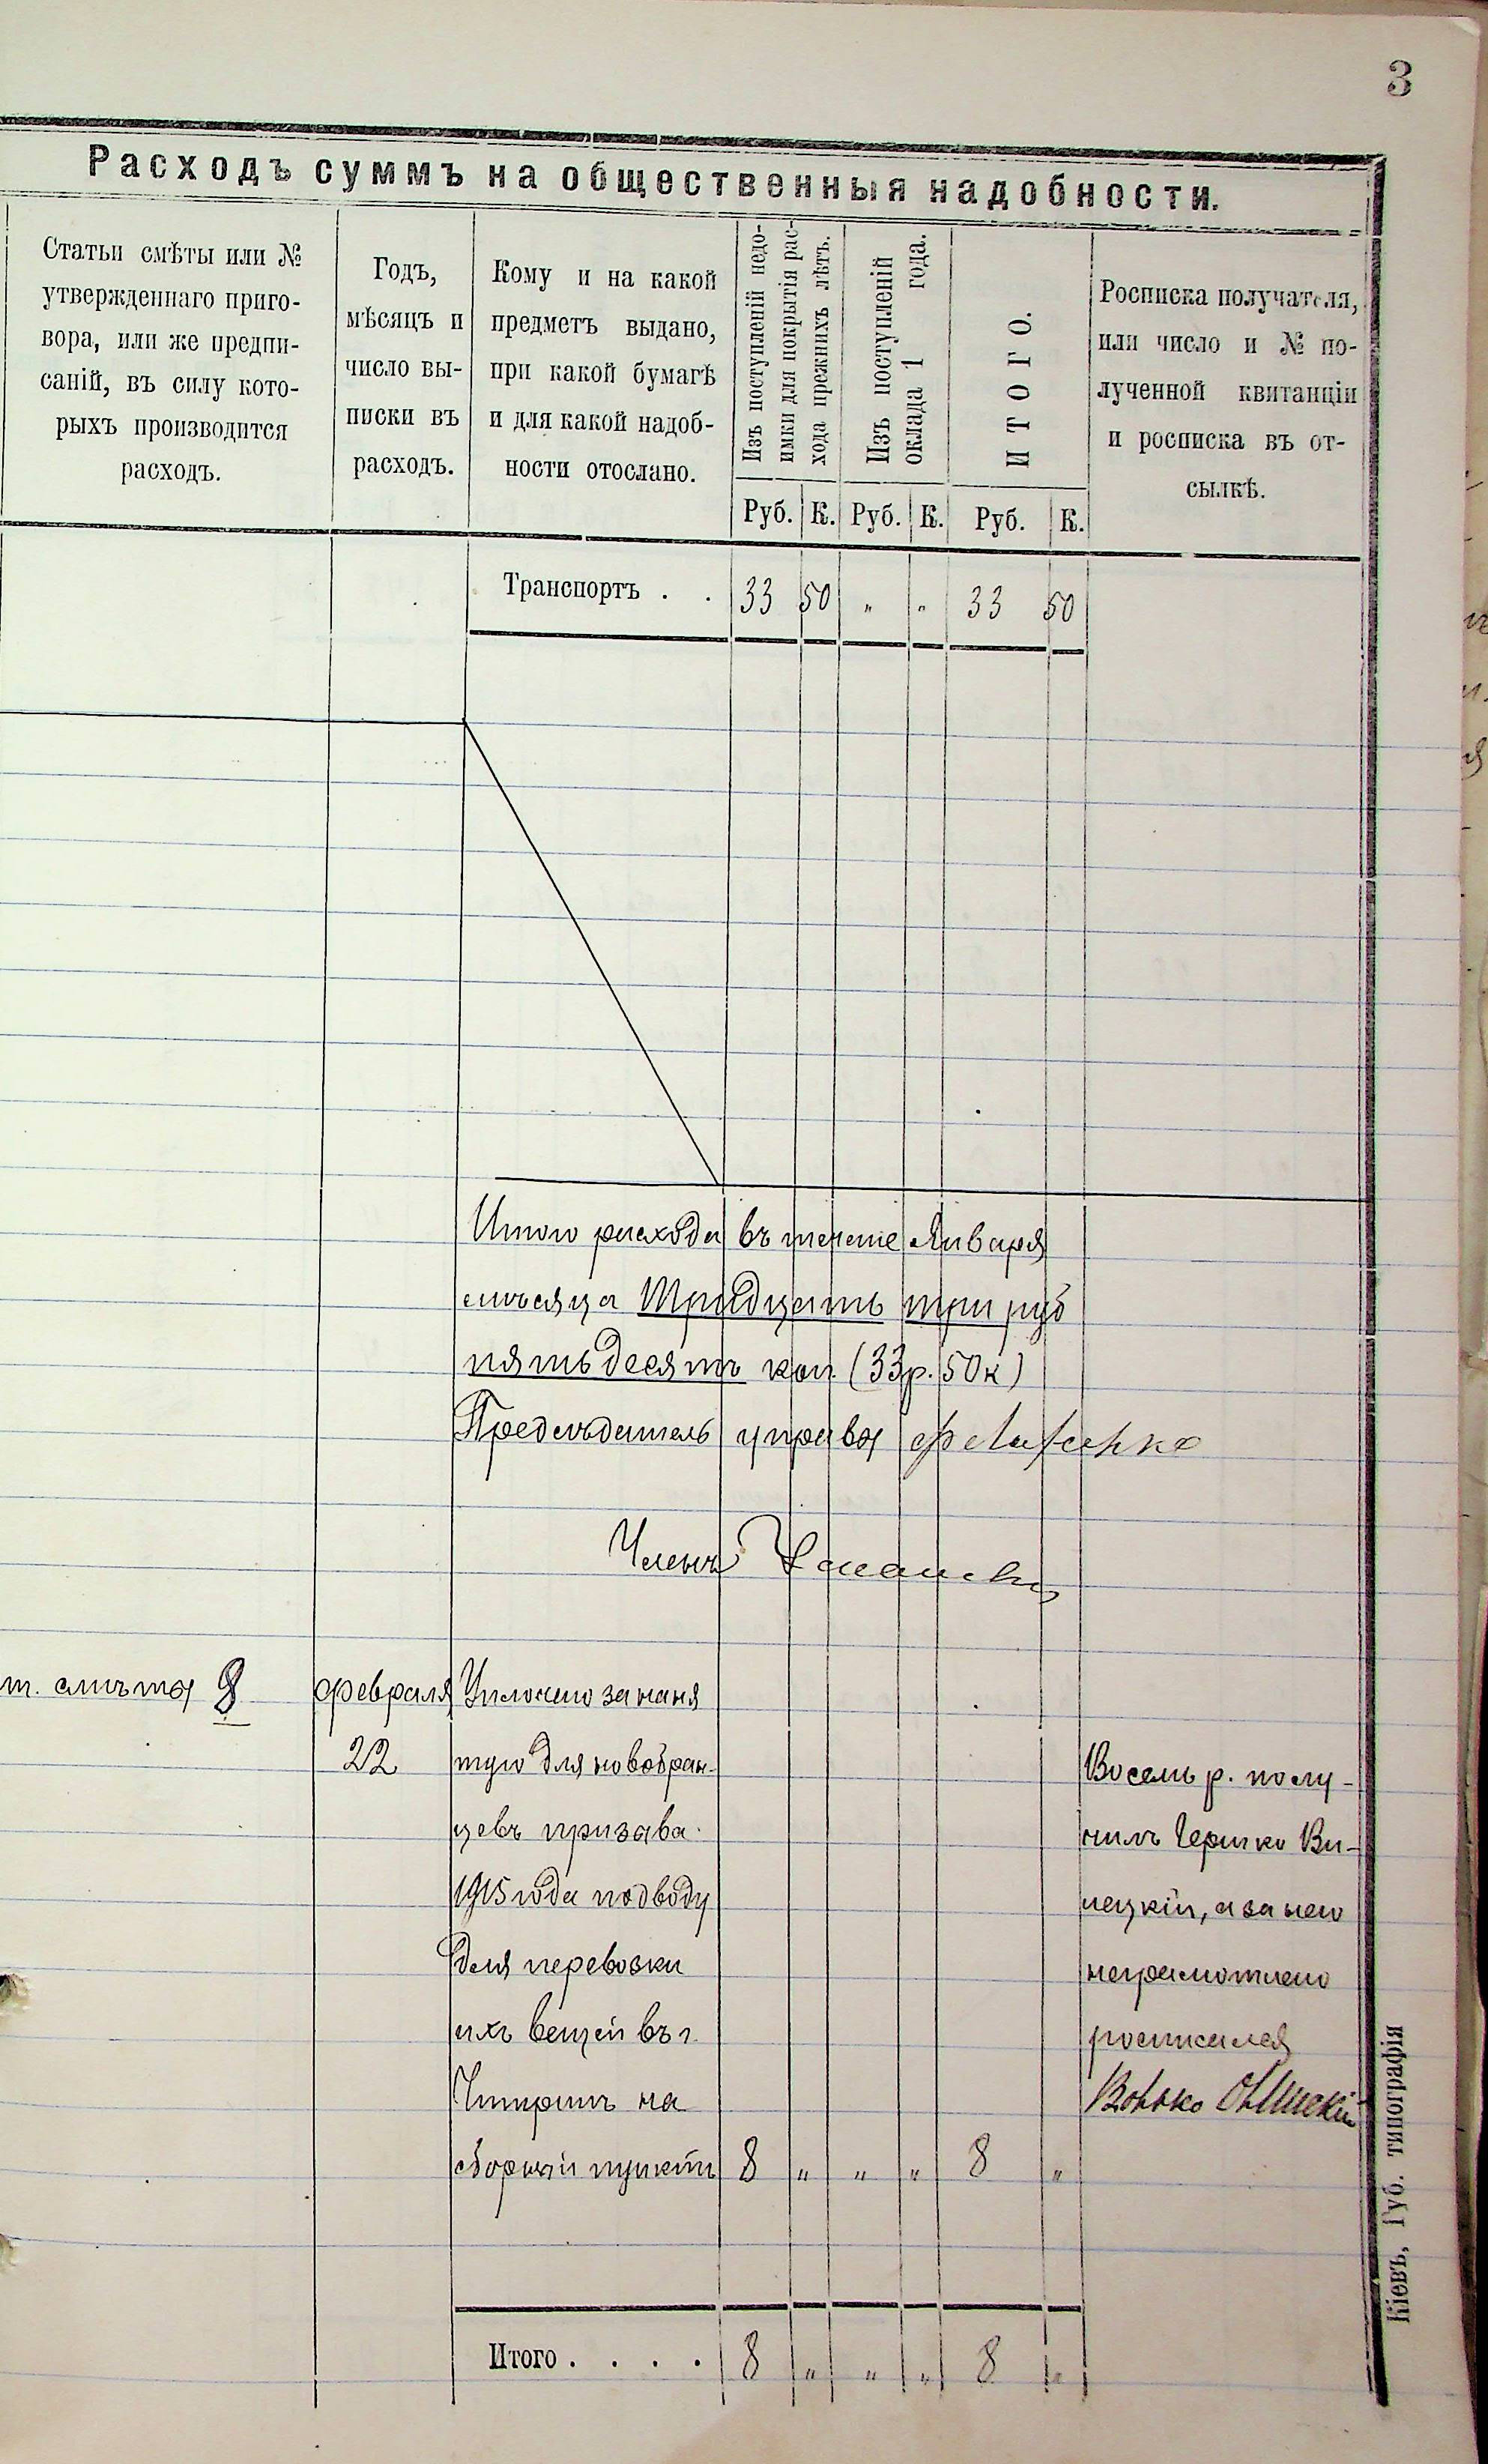 3
Расходъ суммъ на общественныя надобности.
Статьи смѣты или №
утвержденнаго приго-
вора, или же предпи-
саній, въ силу кото-
рыхъ производится
расходъ.
Годъ,
мѣсяцъ и
число вы-
писки въ
расходъ.
Кому и на какой
предметъ выдано,
при какой бумагѣ
и для какой надоб-
ности отослано.
Изъ поступленій недо-
имки для покрытія рас-
хода прежнихъ лѣтъ.
Изъ поступленій
оклада 1 года.
ИТОГО.
Росписка получателя,
или число и № по-
лученной квитанціи
и росписка въ от-
сылкѣ.
Руб. К. Руб. К. Руб. К.
Транспортъ . . 33 50 " " 33 50
Итого расхода въ течение Января
мѣсяца Тридцать три руб
пятьдесятъ коп. (33р. 50к)
Предсѣдатель управы
Членъ
т. смѣты 8
февраля
22
Уплочено за наня
тую для новобран-
цевъ призава
1915 года подводу
для перевозки
ихъ вещей въ г.
на
сборный пунктъ 8 " " " 8 "
Восемь р. полу-
чилъ Гершко Ви-
лецкій, а за него
неграмотнаго
росписался
Итого . . . . 8 " " " 8 "
Кіевъ, Губ. типографія